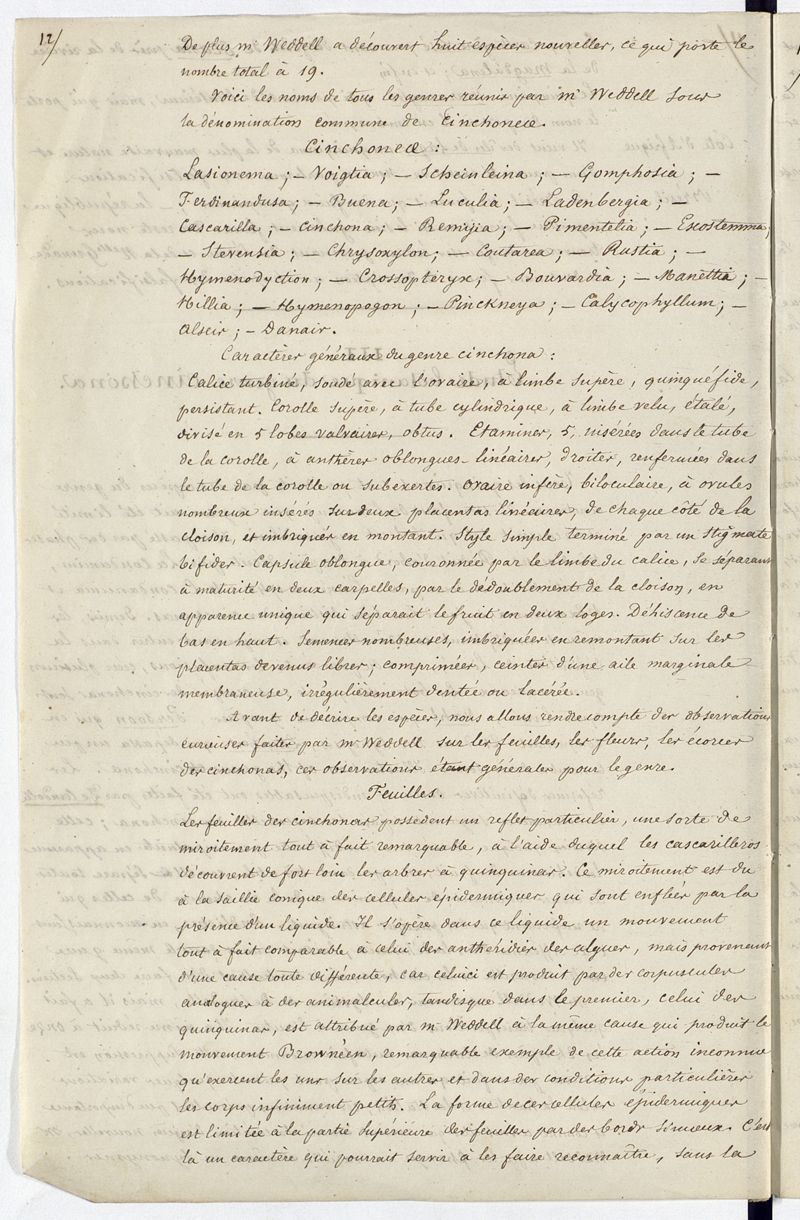 12/
De plus mr Weddell a découvert huit espèces nouvelles, ce qui porte le
nombre total à 19.
Voici les noms de tous les genres réunis par mr Weddell sous
la dénomination commune de Cinchoneæ.
Cinchoneæ :
Lasionema ; — Voigtia ; — Scheinleina ; — Gomphosia ; —
Ferdinandusa ; — Buena ; — Luculia ; — Ladenbergia ; —
Cascarilla ; — Cinchona ; — Remijia ; — Pimentelia ; — Exostemma ;
— Stevensia ; — Chrysoxylon ; — Coutarea ; — Rustia ; —
Hymenodyction ; — Crossopteryx ; — Bouvardia ; — Manettia ; —
Hillia ; — Hymenopogon ; — Pinckneya ; — Calycophyllum ; —
Alseis ; — Danais.
Caractères généraux du genre cinchona :
Calice turbiné, soudé avec l'ovaire, à limbe supère, quinquéfide,
persistant. Corolle supère, à tube cylindrique, à limbe velu, étalé,
divisé en 5 lobes valvaires, obtus. Etamines, 5, insérées dans le tube
de la corolle, à anthères oblongues-linéaires, droites, renfermées dans
le tube de la corolle ou subexertes. Ovaire infère, biloculaire, à ovules
nombreux insérés sur deux placentas linéaires, de chaque côté de la
cloison, et imbriqués en montant. Style simple terminé par un stigmate
bifides. Capsule oblongue, couronnée par le limbe du calice, se séparant
à maturité en deux carpelles, par le dédoublement de la cloison, en
apparence unique qui séparait le fruit en deux loges. Déhiscence de
bas en haut. Semences nombreuses, imbriquées en remontant sur les
placentas devenus libres ; comprimées, ceintes d'une aile marginale
membraneuse, irrégulièrement dentée ou lacérée.
Avant de décrire les espèces, nous allons rendre compte des observations
curieuses faites par mr Weddell sur les feuilles, les fleurs, les écorces
des cinchonas, ces observations étant générales pour le genre.
Feuilles.
Les feuilles des cinchonas possèdent un reflet particulier, une sorte de
miroitement tout à fait remarquable, à l'aide duquel les cascarilleros
découvrent de fort loin les arbres à quinquinas. Ce miroitement est du
à la saillie conique des cellules épidermiques qui sont enflées par la
présence d'un liquide. Il s'opère dans ce liquide un mouvement
tout à fait comparable à celui des anthéridies des algues, mais provenant
d'une cause toute différente, car celui ci est produit par des corpuscules
analogues à des animalcules, tandisque dans le premier, celui des
quinquinas, est attribué par mr Weddell à la même cause qui produit le
mouvement Brownéen, remarquable exemple de cette action inconnue
qu'exercent les uns sur les autres et dans des conditions particulières
les corps infiniment petits. La forme de ces cellules épidermiques
est limitée à la partie supérieure des feuilles par des bords sinueux. C'est
là un caractère qui pourrait servir à les faire reconnaître, sans la